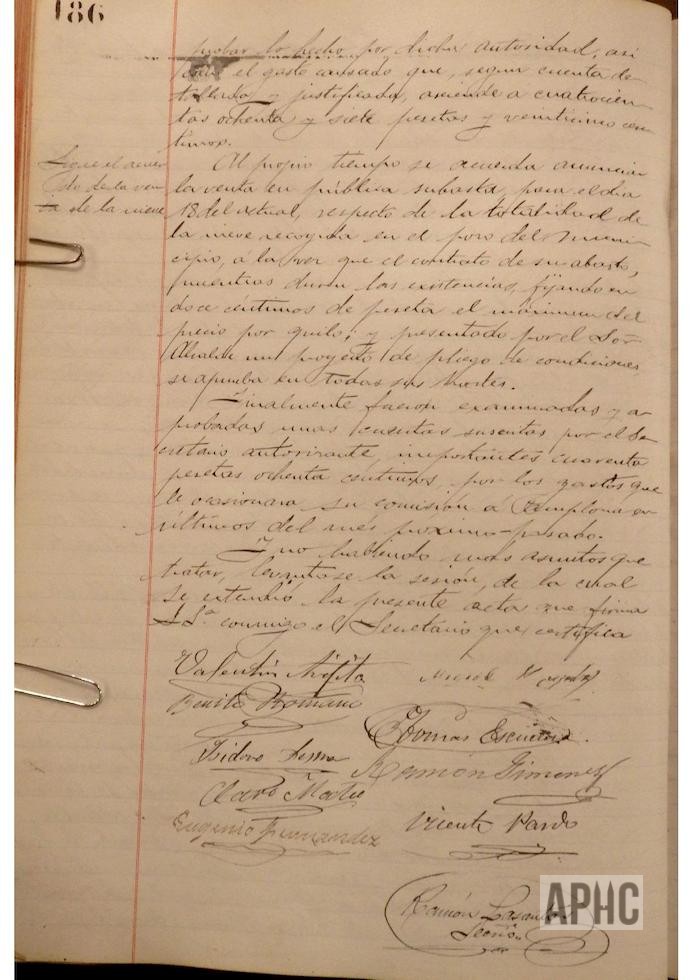 186
probar lo hecho por dicha autoridad, así
como el gasto causado que, según cuenta de-
tallada y justificada, asciende a cuatrocien-
tas ochenta y siete pesetas y veinticinco cén-
timos.
Sigue el acuer-
do de la ven-
ta de la nieve
Al propio tiempo se acuerda anunciar
la venta en pública subasta, para el día
18 del actual, respecto de la totalidad de
la nieve recogida en el pozo del Muni-
cipio, á la vez que el contrato de su abasto,
mientras duren las existencias, fijando en
doce céntimos de peseta el máximum del
precio por quilo; y presentado por el Sor
Alcalde un proyecto de pliego de condiciones,
se aprueba en todas sus partes.
Finalmente fueron examinadas y a-
probadas unas cuentas suscritas por el Se-
cretario autorizante, importantes cuarenta
pesetas ochenta céntimos, por los gastos que
le ocasionara su comisión á Pamplona en
últimos del mes próximo-pasado.
Y no habiendo más asuntos que
tratar, levantose la sesión, de la cual
se extendió la presente acta que firma
S.Sª. conmigo el Secretario que certifica
Valentín
Benito Romano
Tomas Escudero.
Isidoro Lesma
Ramón Gimenez
Claro Mateo
Eugenio Fernandez
Vicente Pardo
Ramón Lasantas
Secrio.
APHC